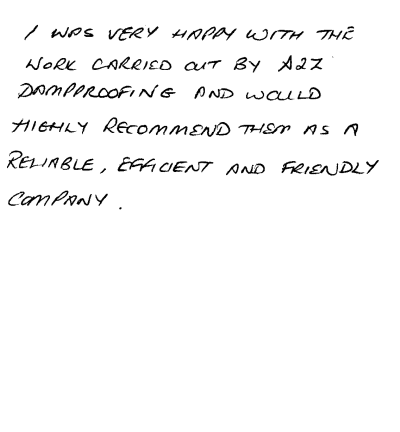 I WAS VERY HAPPY WITH THE
WORK CARRIED OUT BY A2Z
DAMPPROOFING AND WOULD
HIGHLY RECOMMEND THEM AS A
RELIABLE, EFFICIENT AND FRIENDLY
COMPANY.